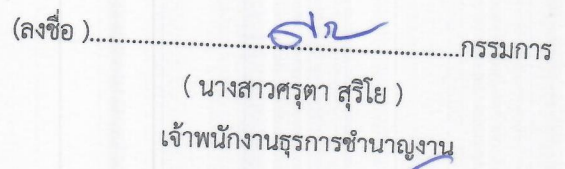 (ลงชื่อ )............................................................กรรมการ
( นางสาวศรุตา สุริโย )
เจ้าพนักงานธุรการชำนาญงาน